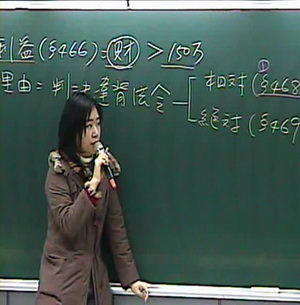 利益(§466)=财>150万
理由=判決違背法令
① 相対(§468
絕対(§469